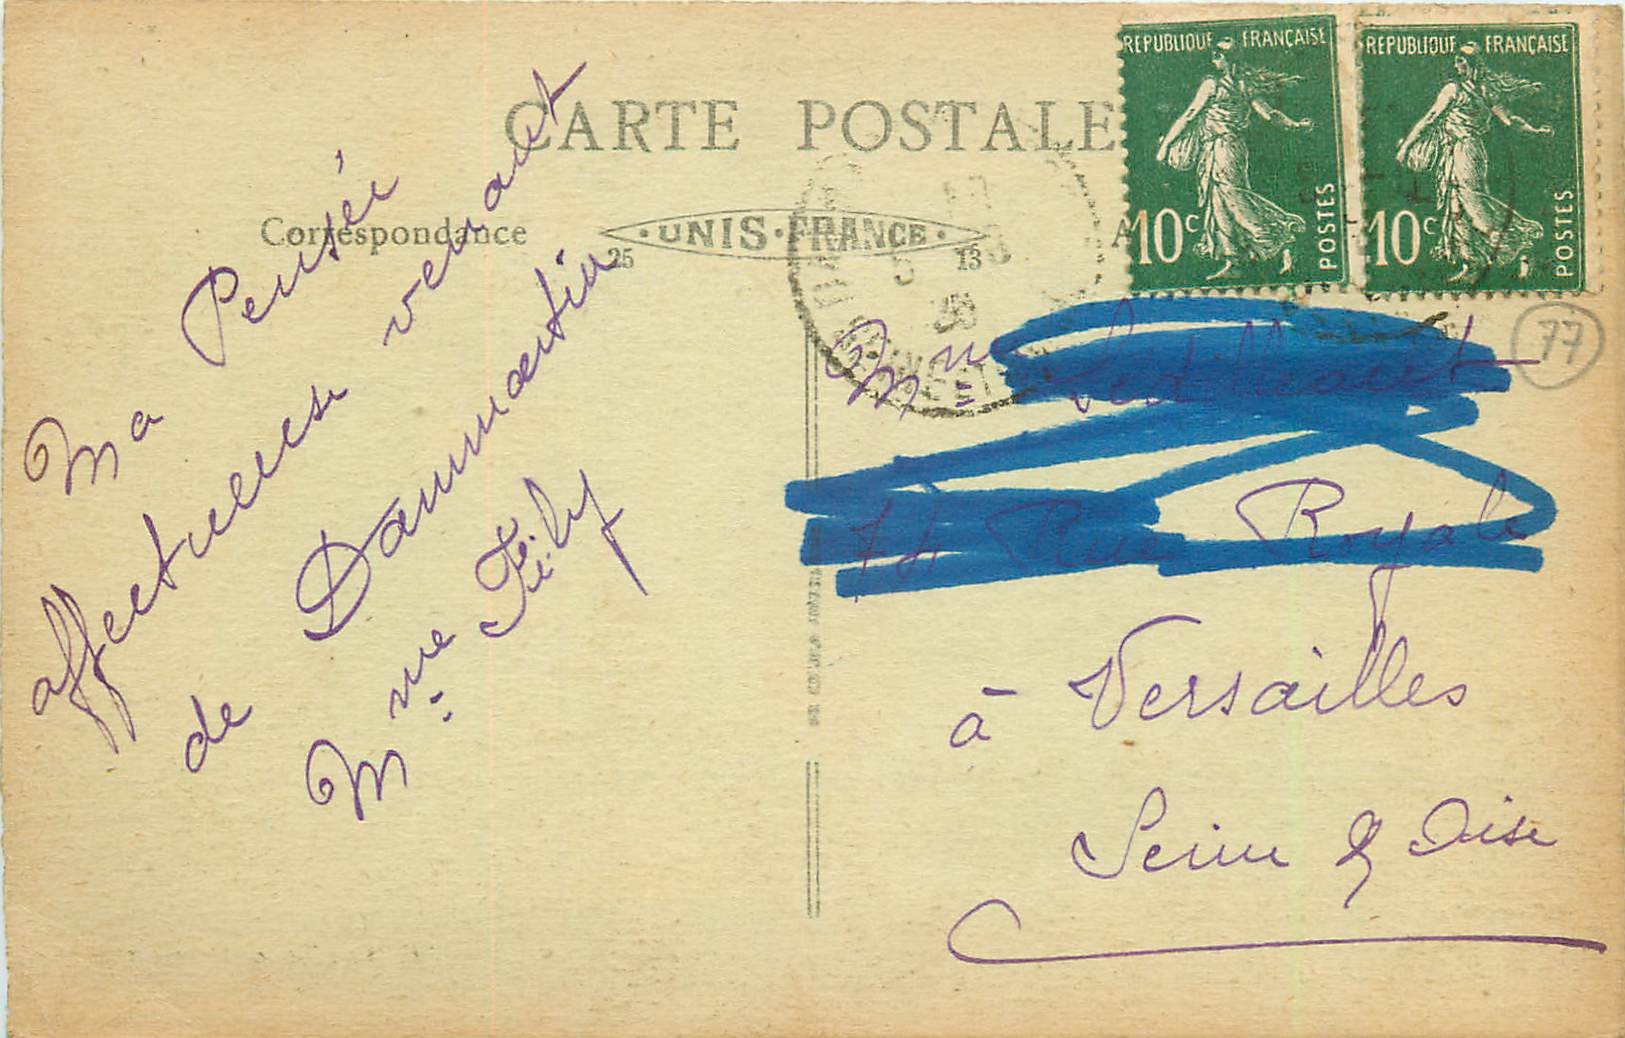 CARTE POSTALE
Correspondance
·UNIS·FRANCE·
25 13
REPUBLIQUE FRANÇAISE
10c POSTES
REPUBLIQUE FRANÇAISE
10c POSTES
77
Ma Pensée
affectueuse venant
de Dammartin
Mme Fély
Mme
74 Rue Royale
à Versailles
Seine & Oise